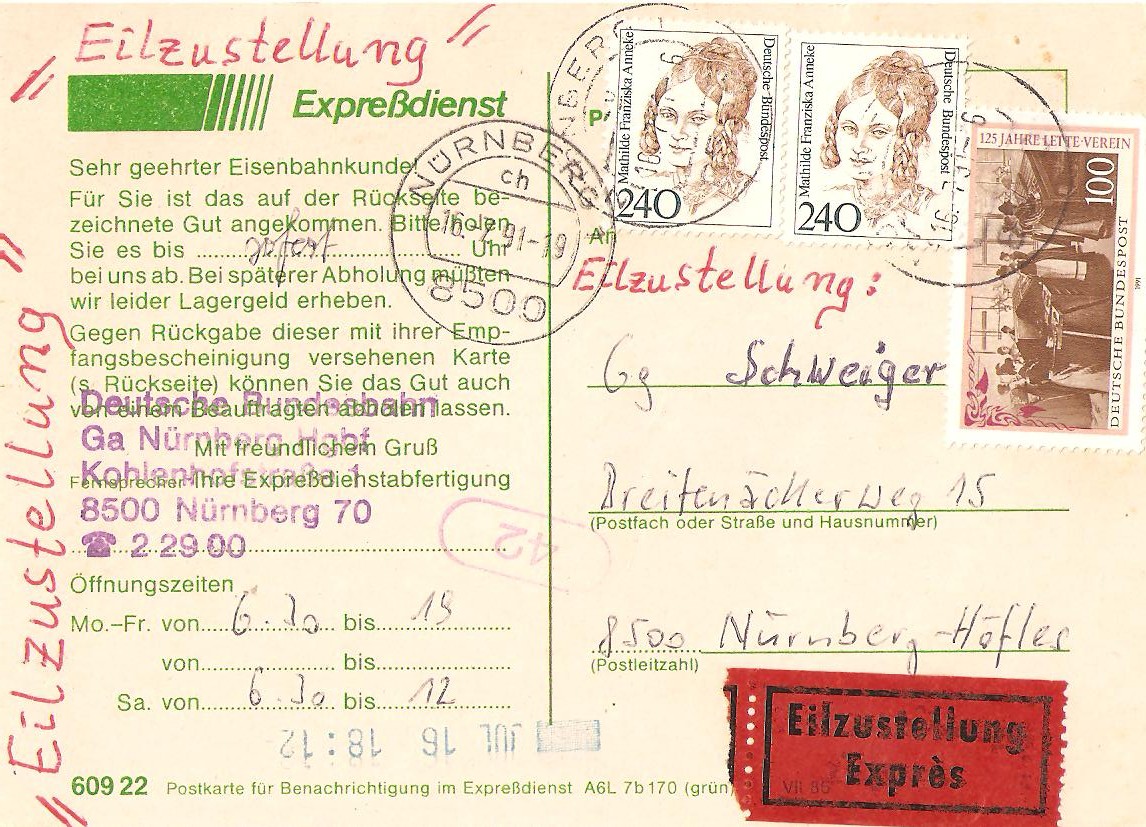 "Eilzustellung"
Expreßdienst
Sehr geehrter Eisenbahnkunde!
Für Sie ist das auf der Rückseite be-
zeichnete Gut angekommen. Bitte holen
Sie es bis sofort Uhr
bei uns ab. Bei späterer Abholung müßten
wir leider Lagergeld erheben.
Gegen Rückgabe dieser mit ihrer Emp-
fangsbescheinigung versehenen Karte
(s. Rückseite) können Sie das Gut auch
von einem Beauftragten abholen lassen.
Mit freundlichem Gruß
Fernsprecher Ihre Expreßdienstabfertigung
Deutsche Bundesbahn
Ga Nürnberg Hgbf
Kohlenhofstraße 1
8500 Nürnberg 70
☎ 2 29 00
Öffnungszeiten
Mo.–Fr. von 6.30 bis 19
von bis
Sa. von 6.30 bis 12
JUL 16 18:12
609 22 Postkarte für Benachrichtigung im Expreßdienst A6L 7b 170 (grün) VII 85
"Eilzustellung"
NÜRNBERG
ch
16.-7.91-19
8500
Mathilde Franziska Anneke
Deutsche Bundespost
240
Mathilde Franziska Anneke
Deutsche Bundespost
240
125 JAHRE LETTE-VEREIN
100
DEUTSCHE BUNDESPOST
1991
An
Eilzustellung:
Gg Schweiger
Breitenäckerweg 15
(Postfach oder Straße und Hausnummer)
8500 Nürnberg-Höfles
(Postleitzahl)
42
Eilzustellung
Exprès